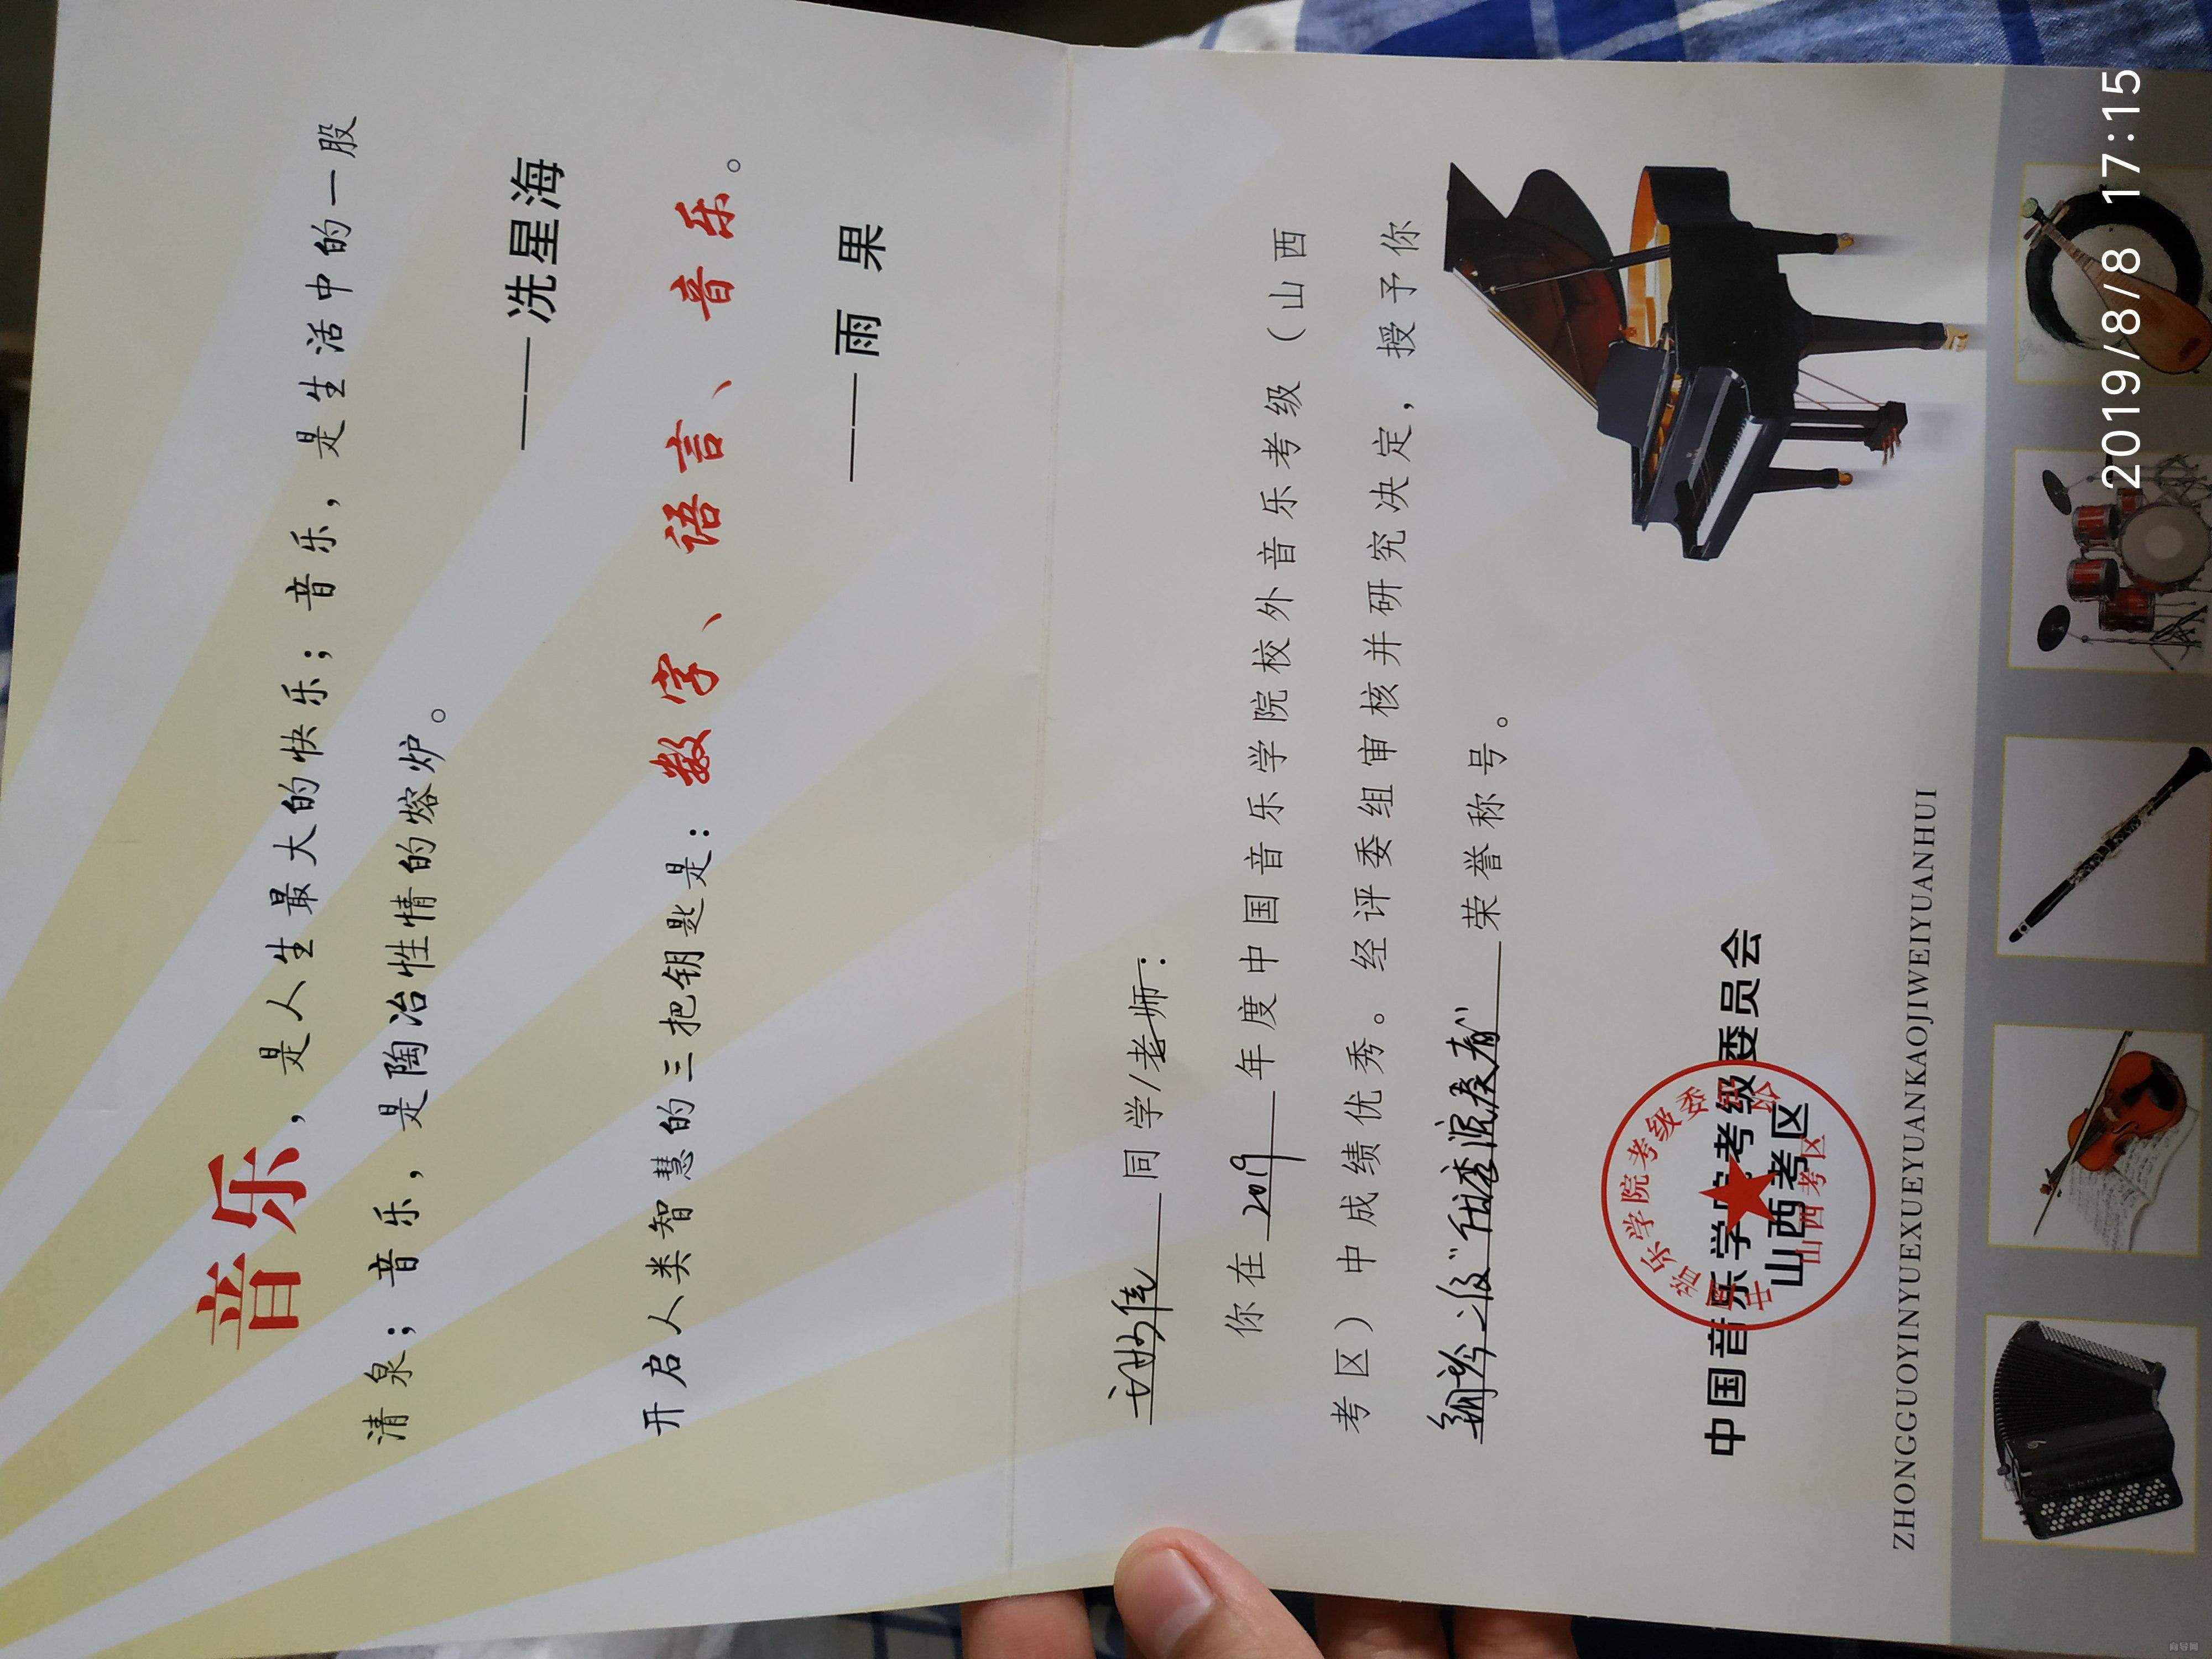 音乐，是人生最大的快乐；音乐，是生活中的一股
清泉；音乐，是陶冶性情的熔炉。
——冼星海
开启人类智慧的三把钥匙是：数字、语言、音乐。
——雨 果
同学/老师：
你在 2019 年度中国音乐学院校外音乐考级（山西
考区）中成绩优秀。经评委组审核并研究决定，授予你
钢琴二级“优秀演奏者” 荣誉称号。
中国音乐学院考级委员会
山西考区
中国音乐学院考级委员会
山西考区
ZHONGGUOYINYUEXUEYUANKAOJIWEIYUANHUI
2019/8/8 17:15